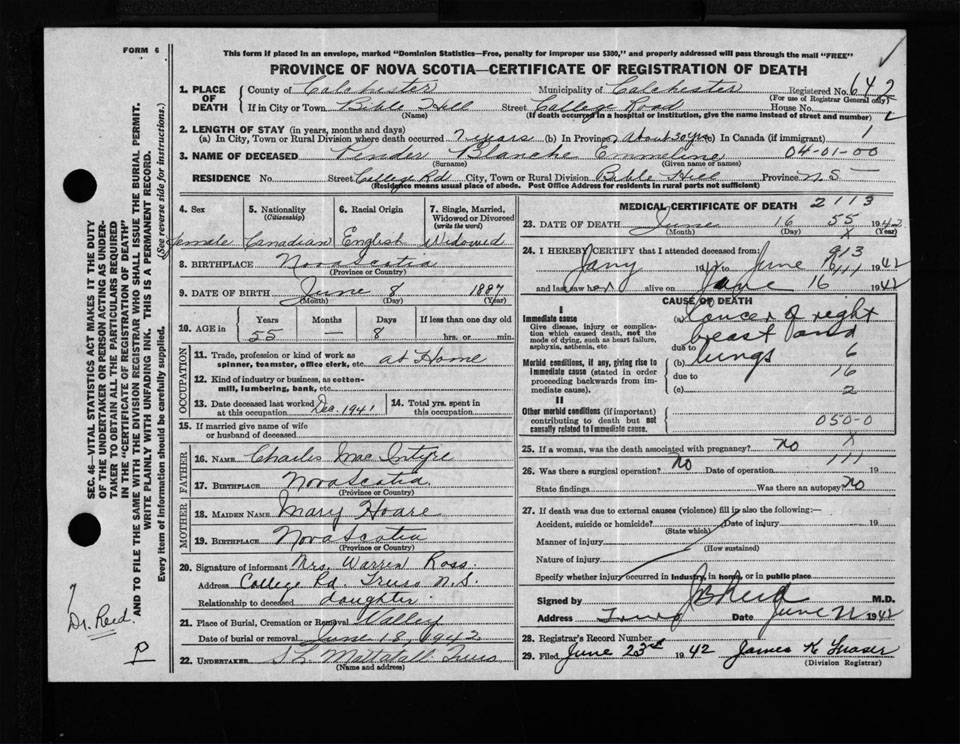 FORM 6
This form if placed in an envelope, marked "Dominion Statistics—Free, penalty for improper use $300," and properly addressed will pass through the mail "FREE"
PROVINCE OF NOVA SCOTIA—CERTIFICATE OF REGISTRATION OF DEATH
1. PLACE OF DEATH
County of Colchester Municipality of Colchester Registered No. 642
(For use of Registrar General only)
If in City or Town Bible Hill Street College Road House No.
(Name) (If death occurred in a hospital or institution, give the name instead of street and number)
2. LENGTH OF STAY (in years, months and days)
(a) In City, Town or Rural Division where death occurred 7 years (b) In Province About 20 yrs (c) In Canada (if immigrant) 1
3. NAME OF DECEASED Pender Blanche Emmeline 04-01-00
(Surname) (Given name or names)
RESIDENCE No. Street College Rd City, Town or Rural Division Bible Hill Province N.S.
(Residence means usual place of abode. Post Office Address for residents in rural parts not sufficient)
4. Sex
Female
5. Nationality (Citizenship)
Canadian
6. Racial Origin
English
7. Single, Married, Widowed or Divorced (write the word)
Widowed
8. BIRTHPLACE Nova Scotia
(Province or Country)
9. DATE OF BIRTH June 8 1887
(Month) (Day) (Year)
10. AGE in Years Months Days If less than one day old
55 — 8 hrs. or min.
OCCUPATION
11. Trade, profession or kind of work as spinner, teamster, office clerk, etc. at Home
12. Kind of industry or business, as cotton-mill, lumbering, bank, etc.
13. Date deceased last worked at this occupation Dec. 1941
14. Total yrs. spent in this occupation
15. If married give name of wife or husband of deceased
FATHER
16. NAME Charles MacIntyre
17. BIRTHPLACE Nova Scotia
(Province or Country)
MOTHER
18. MAIDEN NAME Mary Hoare
19. BIRTHPLACE Nova Scotia
(Province or Country)
20. Signature of informant Mrs. Warren Ross
Address College Rd. Truro N.S.
Relationship to deceased daughter
21. Place of Burial, Cremation or Removal Valley
Date of burial or removal June 18, 1942
22. UNDERTAKER Mattatall Truro
(Name and address)
MEDICAL CERTIFICATE OF DEATH 2113
23. DATE OF DEATH June 16 55 1942
(Month) (Day) (Year)
24. I HEREBY CERTIFY that I attended deceased from: 913
Jany to June 1942
and last saw her alive on June 16 1942
CAUSE OF DEATH
I
Immediate cause
Give disease, injury or complication which caused death, not the mode of dying, such as heart failure, asphyxia, asthenia, etc.
(a) Cancer of right
breast and
due to
lungs 6
Morbid conditions, if any, giving rise to immediate cause (stated in order proceeding backwards from immediate cause).
(b)
due to 16
(c) 2
II
Other morbid conditions (if important) contributing to death but not causally related to immediate cause.
050-0
25. If a woman, was the death associated with pregnancy? No X
26. Was there a surgical operation? No Date of operation 19
State findings Was there an autopsy? No
27. If death was due to external causes (violence) fill in also the following:—
Accident, suicide or homicide? Date of injury 19
(State which)
Manner of injury
(How sustained)
Nature of injury
Specify whether injury occurred in industry, in home, or in public place
Signed by JB Reid M.D.
Address Truro Date June 21 1942
28. Registrar's Record Number
29. Filed June 23rd 1942 James K Fraser
(Division Registrar)
SEC. 46—VITAL STATISTICS ACT MAKES IT THE DUTY
OF THE UNDERTAKER OR PERSON ACTING AS UNDER-
TAKER TO OBTAIN ALL THE PARTICULARS REQUIRED
IN THE "CERTIFICATE OF REGISTRATION OF DEATH"
AND TO FILE THE SAME WITH THE DIVISION REGISTRAR WHO SHALL ISSUE THE BURIAL PERMIT.
WRITE PLAINLY WITH UNFADING INK. THIS IS A PERMANENT RECORD.
Every item of information should be carefully supplied. (See reverse side for instructions.)
Dr. Reid.
P